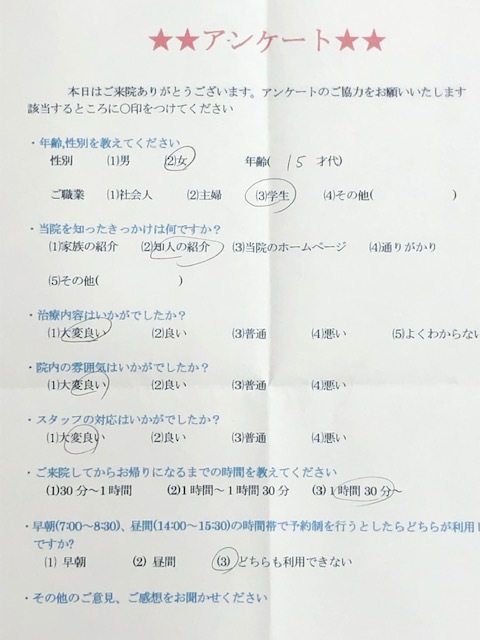 ★★アンケート★★
本日はご来院ありがとうございます。アンケートのご協力をお願いいたします
該当するところに〇印をつけてください
・年齢,性別を教えてください
性別 (1)男 (2)女 年齢( 15 才代)
ご職業 (1)社会人 (2)主婦 (3)学生 (4)その他( )
・当院を知ったきっかけは何ですか?
(1)家族の紹介 (2)知人の紹介 (3)当院のホームページ (4)通りがかり
(5)その他( )
・治療内容はいかがでしたか?
(1)大変良い (2)良い (3)普通 (4)悪い (5)よくわからない
・院内の雰囲気はいかがでしたか?
(1)大変良い (2)良い (3)普通 (4)悪い
・スタッフの対応はいかがでしたか?
(1)大変良い (2)良い (3)普通 (4)悪い
・ご来院してからお帰りになるまでの時間を教えてください
(1)30分～1時間 (2)1時間～1時間30分 (3)1時間30分～
・早朝(7:00～8:30)、昼間(14:00～15:30)の時間帯で予約制を行うとしたらどちらが利用
ですか?
(1) 早朝 (2) 昼間 (3) どちらも利用できない
・その他のご意見、ご感想をお聞かせください